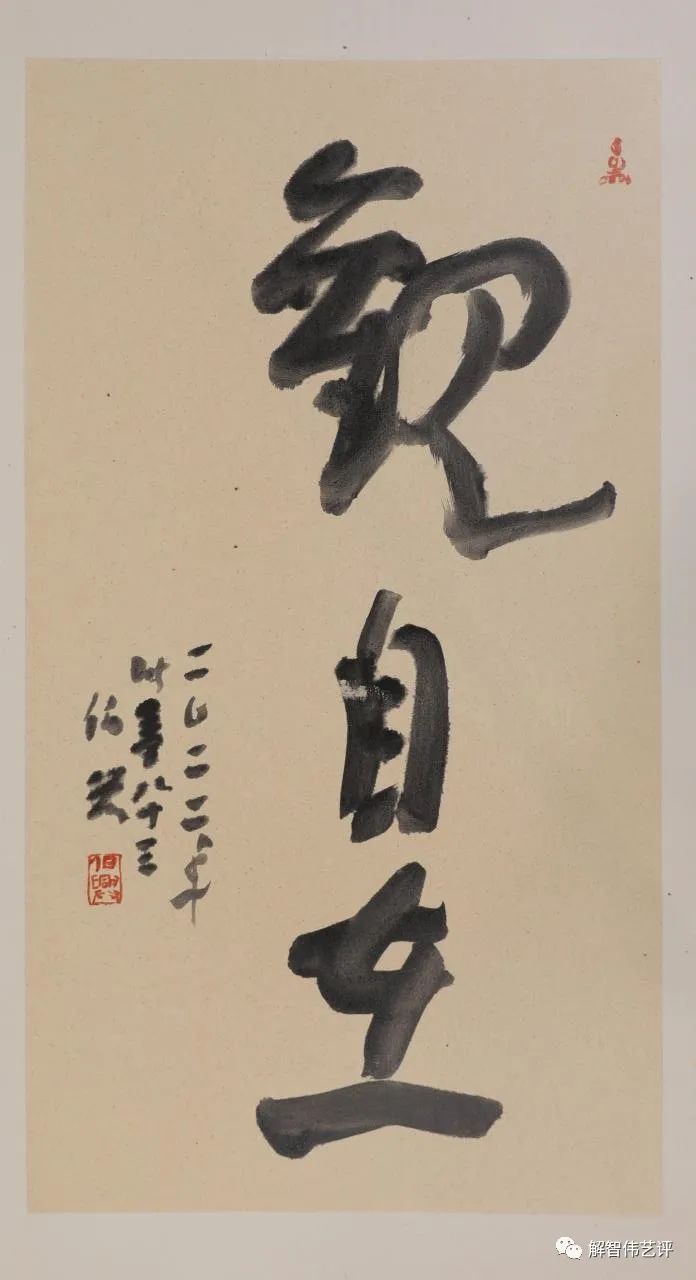 觀自在
二〇二二年
时八十三
伯兴
解智伟艺评